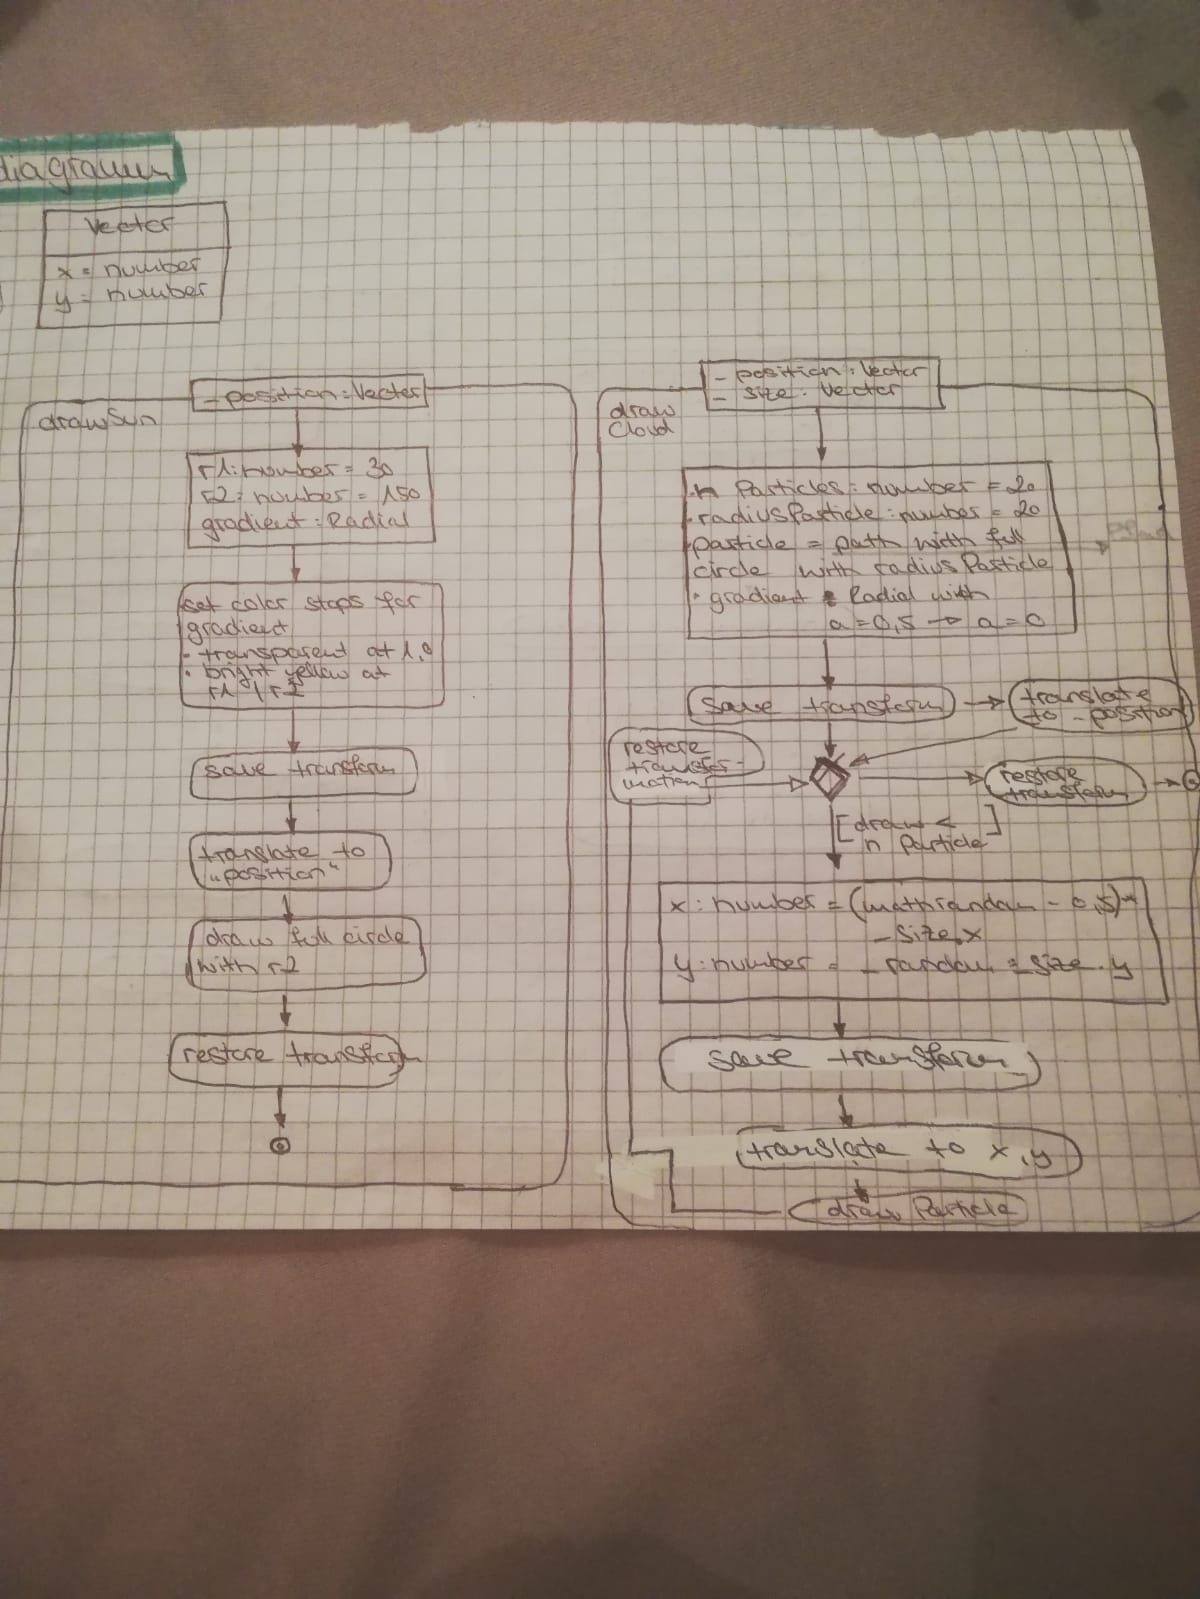 diagramm
Vector
x = number
y = number
_position : Vector
drawSun
r1: number = 30
r2: number = 150
gradient : Radial
set color stops for
gradient
- transparent at 1,0
• bright yellow at
r1 / r2
save transform
translate to
"position"
draw full circle
with r2
restore transform
_ position : Vector
_ size : Vector
draw
Cloud
n Particles : number = 20
• radiusParticle : number = 20
particle = path with full
circle with radius Particle
• gradient = Radial with
a = 0,5 → a = 0
save transform
translate
to _ position
restore
transfor-
mation
restore
transform
[draw < ]
n Particle
x : number = (math random - 0,5)*
_ size.x
y : number = _ random * size . y
save transform
translate to x,y
draw Particle